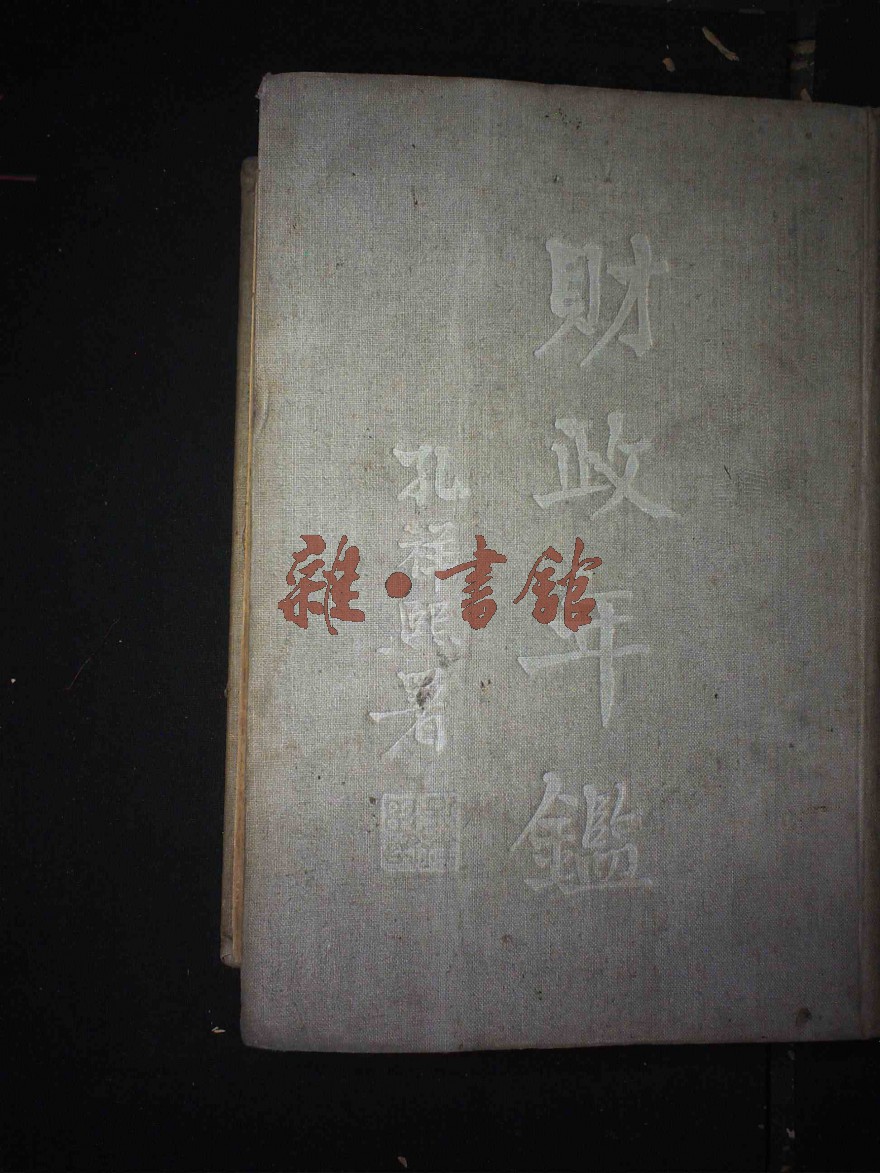 財政年鑑
孔祥熙署
雜·書館